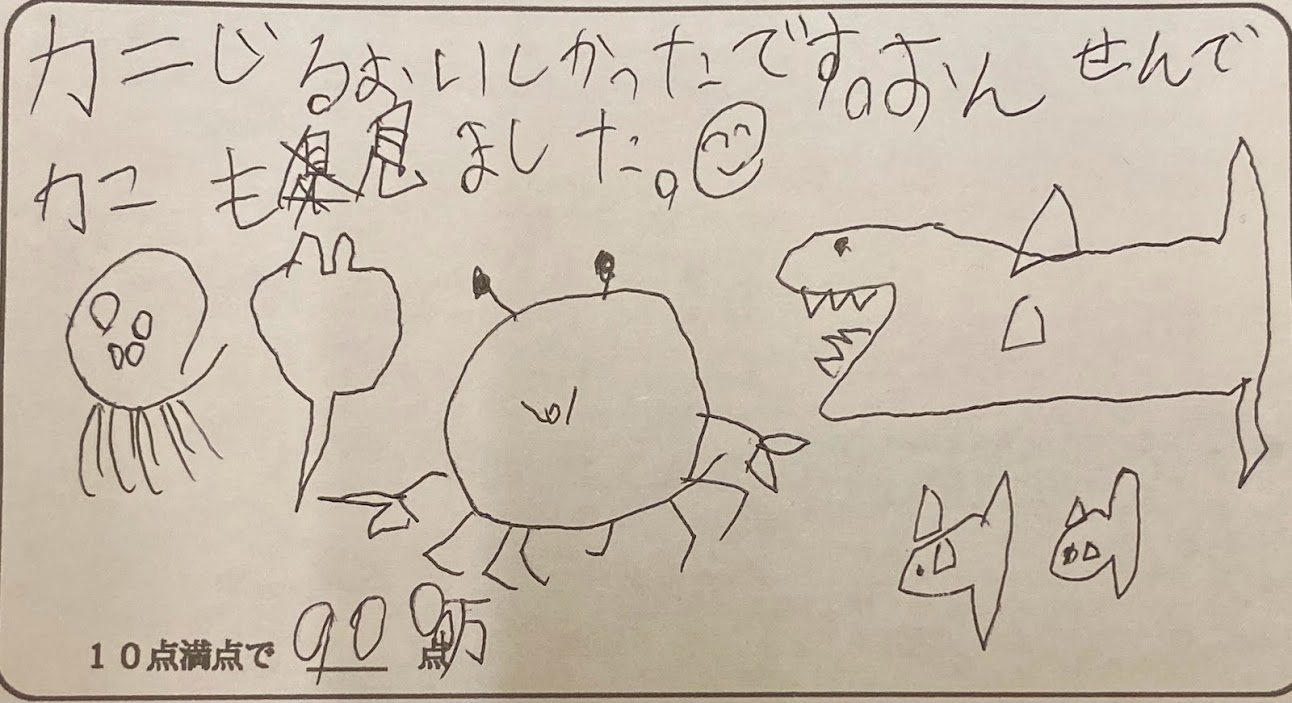 カニじるおいしかったです。おんせんで
カニも見ました。
10点満点で 900万点